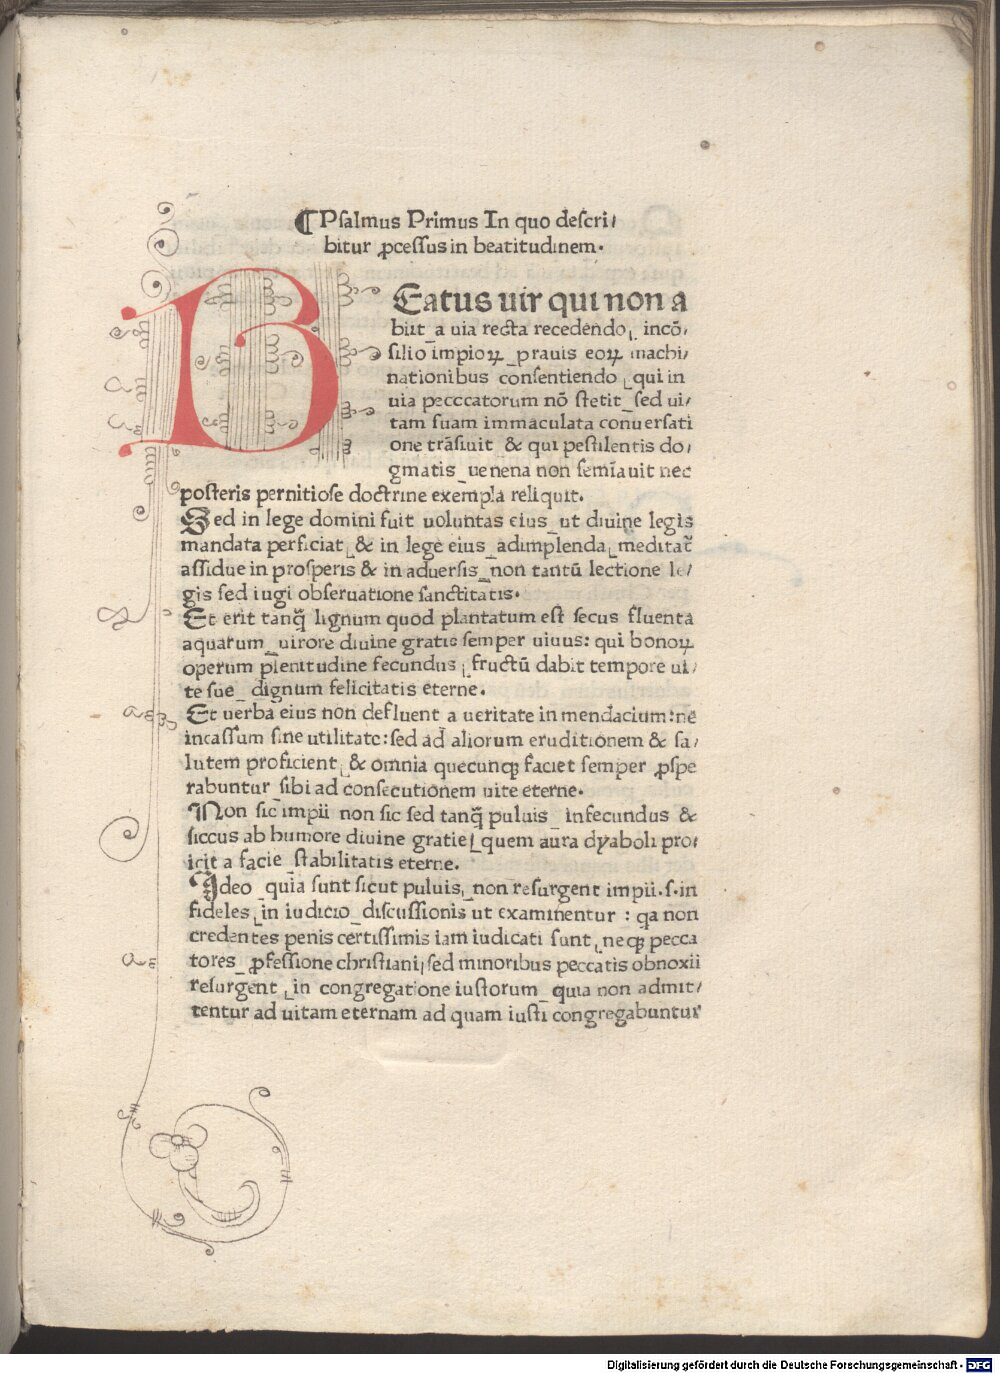 ¶Psalmus Primus In quo descri/
bitur ꝓcessus in beatitudinem.
BEatus uir qui non a
biit a uia recta recedendo, incō/
silio impioꝝ prauis eoꝝ machi/
nationibus consentiendo, qui in
uia pecccatorum nō stetit sed ui/
tam suam immaculata conuersati
one trāsiuit & qui pestilentis do/
gmatis uenena non semīauit nec
posteris pernitiose doctrine exempla reliquit.
Sed in lege domini fuit uoluntas eius ut diuine legis
mandata perficiat, & in lege eius adimplenda, meditat᷑
assidue in prosperis & in aduersis, non tantū lectione le/
gis sed iugi obseruatione sanctitatis.
Et erit tanq̄ lignum quod plantatum est secus fluenta
aquarum uirore diuine gratie semper uiuus: qui bonoꝝ
operum plenitudine fecundus, fructū dabit tempore ui/
te sue dignum felicitatis eterne.
Et uerba eius non defluent a ueritate in mendacium: nē
incassum sine utilitate: sed ad aliorum eruditionem & sa/
lutem proficient, & omnia quecunqꝫ faciet semper ꝓspe
rabuntur sibi ad consecutionem uite eterne.
Non sic impii non sic sed tanq̄ puluis infecundus &
siccus ab humore diuine gratie, quem aura dyaboli pro/
iicit a facie stabilitatis eterne.
Ideo quia sunt sicut puluis, non resurgent impii .s. in
fideles, in iudicio discussionis ut examinentur : qa non
credentes penis certissimis iam iudicati sunt, neqꝫ pecca
tores ꝓfessione christiani, sed minoribus peccatis obnoxii
resurgent, in congregatione iustorum quia non admit/
tentur ad uitam eternam ad quam iusti congregabuntur
Digitalisierung gefördert durch die Deutsche Forschungsgemeinschaft - DFG